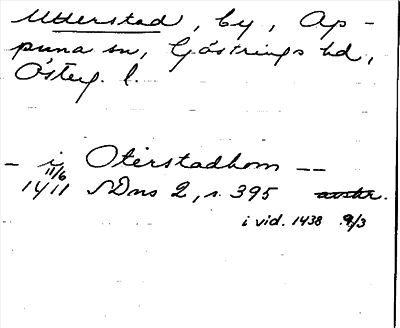 Utterstad, by, Ap-
puna sn, Göstrings hd,
Österg. l.
- i Oterstadhom --
11/6
1411 SDns 2, s. 395 avskr.
i vid. 1438 9/3